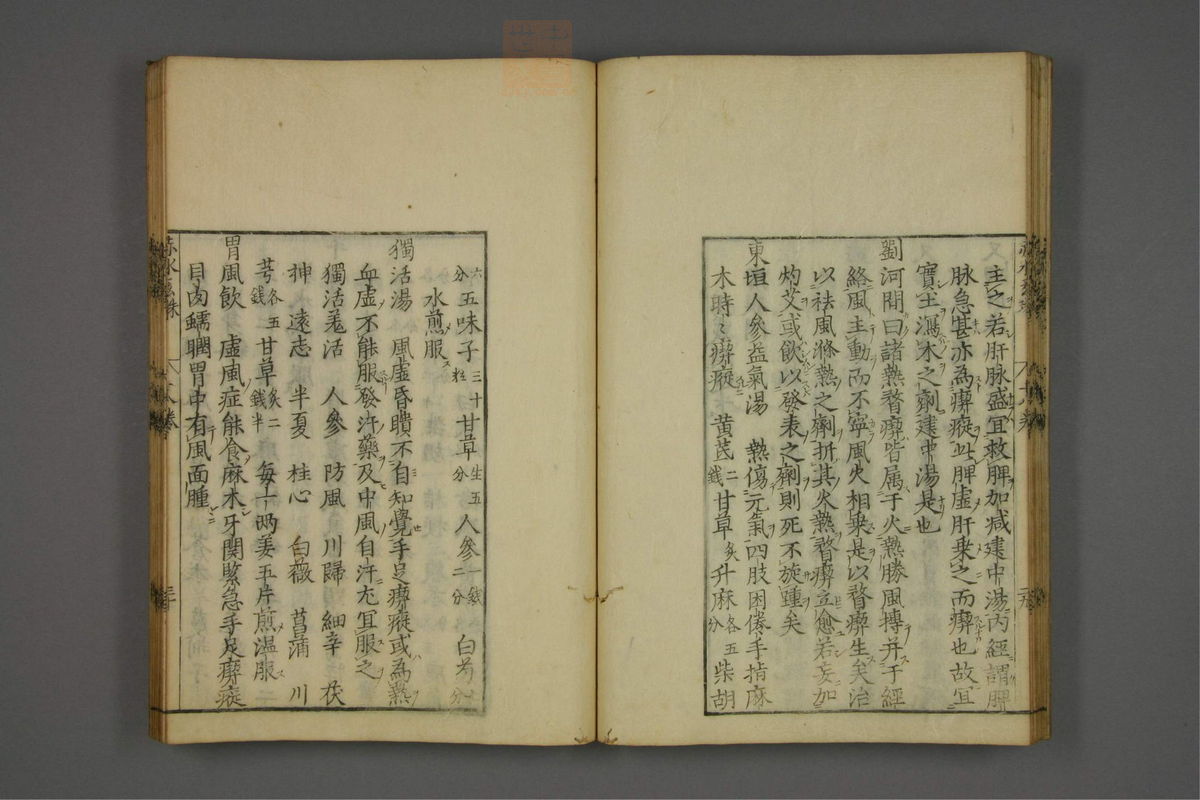 主之若肝脉盛宜救脾加减建中湯内經謂脾
脉急甚亦為瘛瘲此脾虚肝乗之而瘛也故宜
實土瀉木之劑建中湯是也
劉河間曰諸熱瞀瘛皆属于火熱勝風摶并于經
絡風主動而不寧風火相乗是以瞀瘛生矣治
以祛風滌熱之劑折其火熱瞀瘛立愈若妄加
灼艾或飲以發表之劑則死不旋踵矣
東垣人參益氣湯 熱傷元氣四肢困倦手指麻
木時〻瘛瘲 黄芪二錢甘草炙升麻各五分柴胡
六分五味子三十粒甘草生五分人參一錢二分白芍
水煎服
獨活湯 風虚昏瞶不自知覺手足瘛瘲或為熱
血虚不能服發汗藥及中風自汗尤宜服之
獨活羗活 人參 防風 川歸 細辛 茯
神 遠志 半夏 桂心 白薇 菖蒲 川
芎各五錢甘草炙二錢半每一兩姜五片煎温服
胃風飲 虚風症能食麻木牙関緊急手足瘛瘲
目肉蠕瞤胃中有風面腫